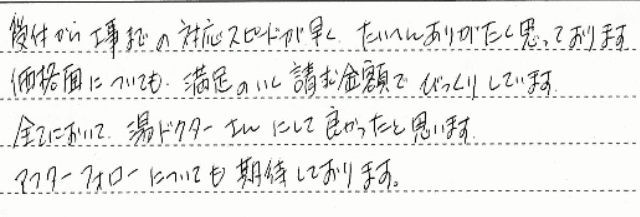 受付から工事までの対応スピードが早く、たいへんありがたく思っております
価格面についても、満足のいく請求金額でびっくりしています
全てにおいて、湯ドクターさんにして良かったと思います
アフターフォローについても期待しております。